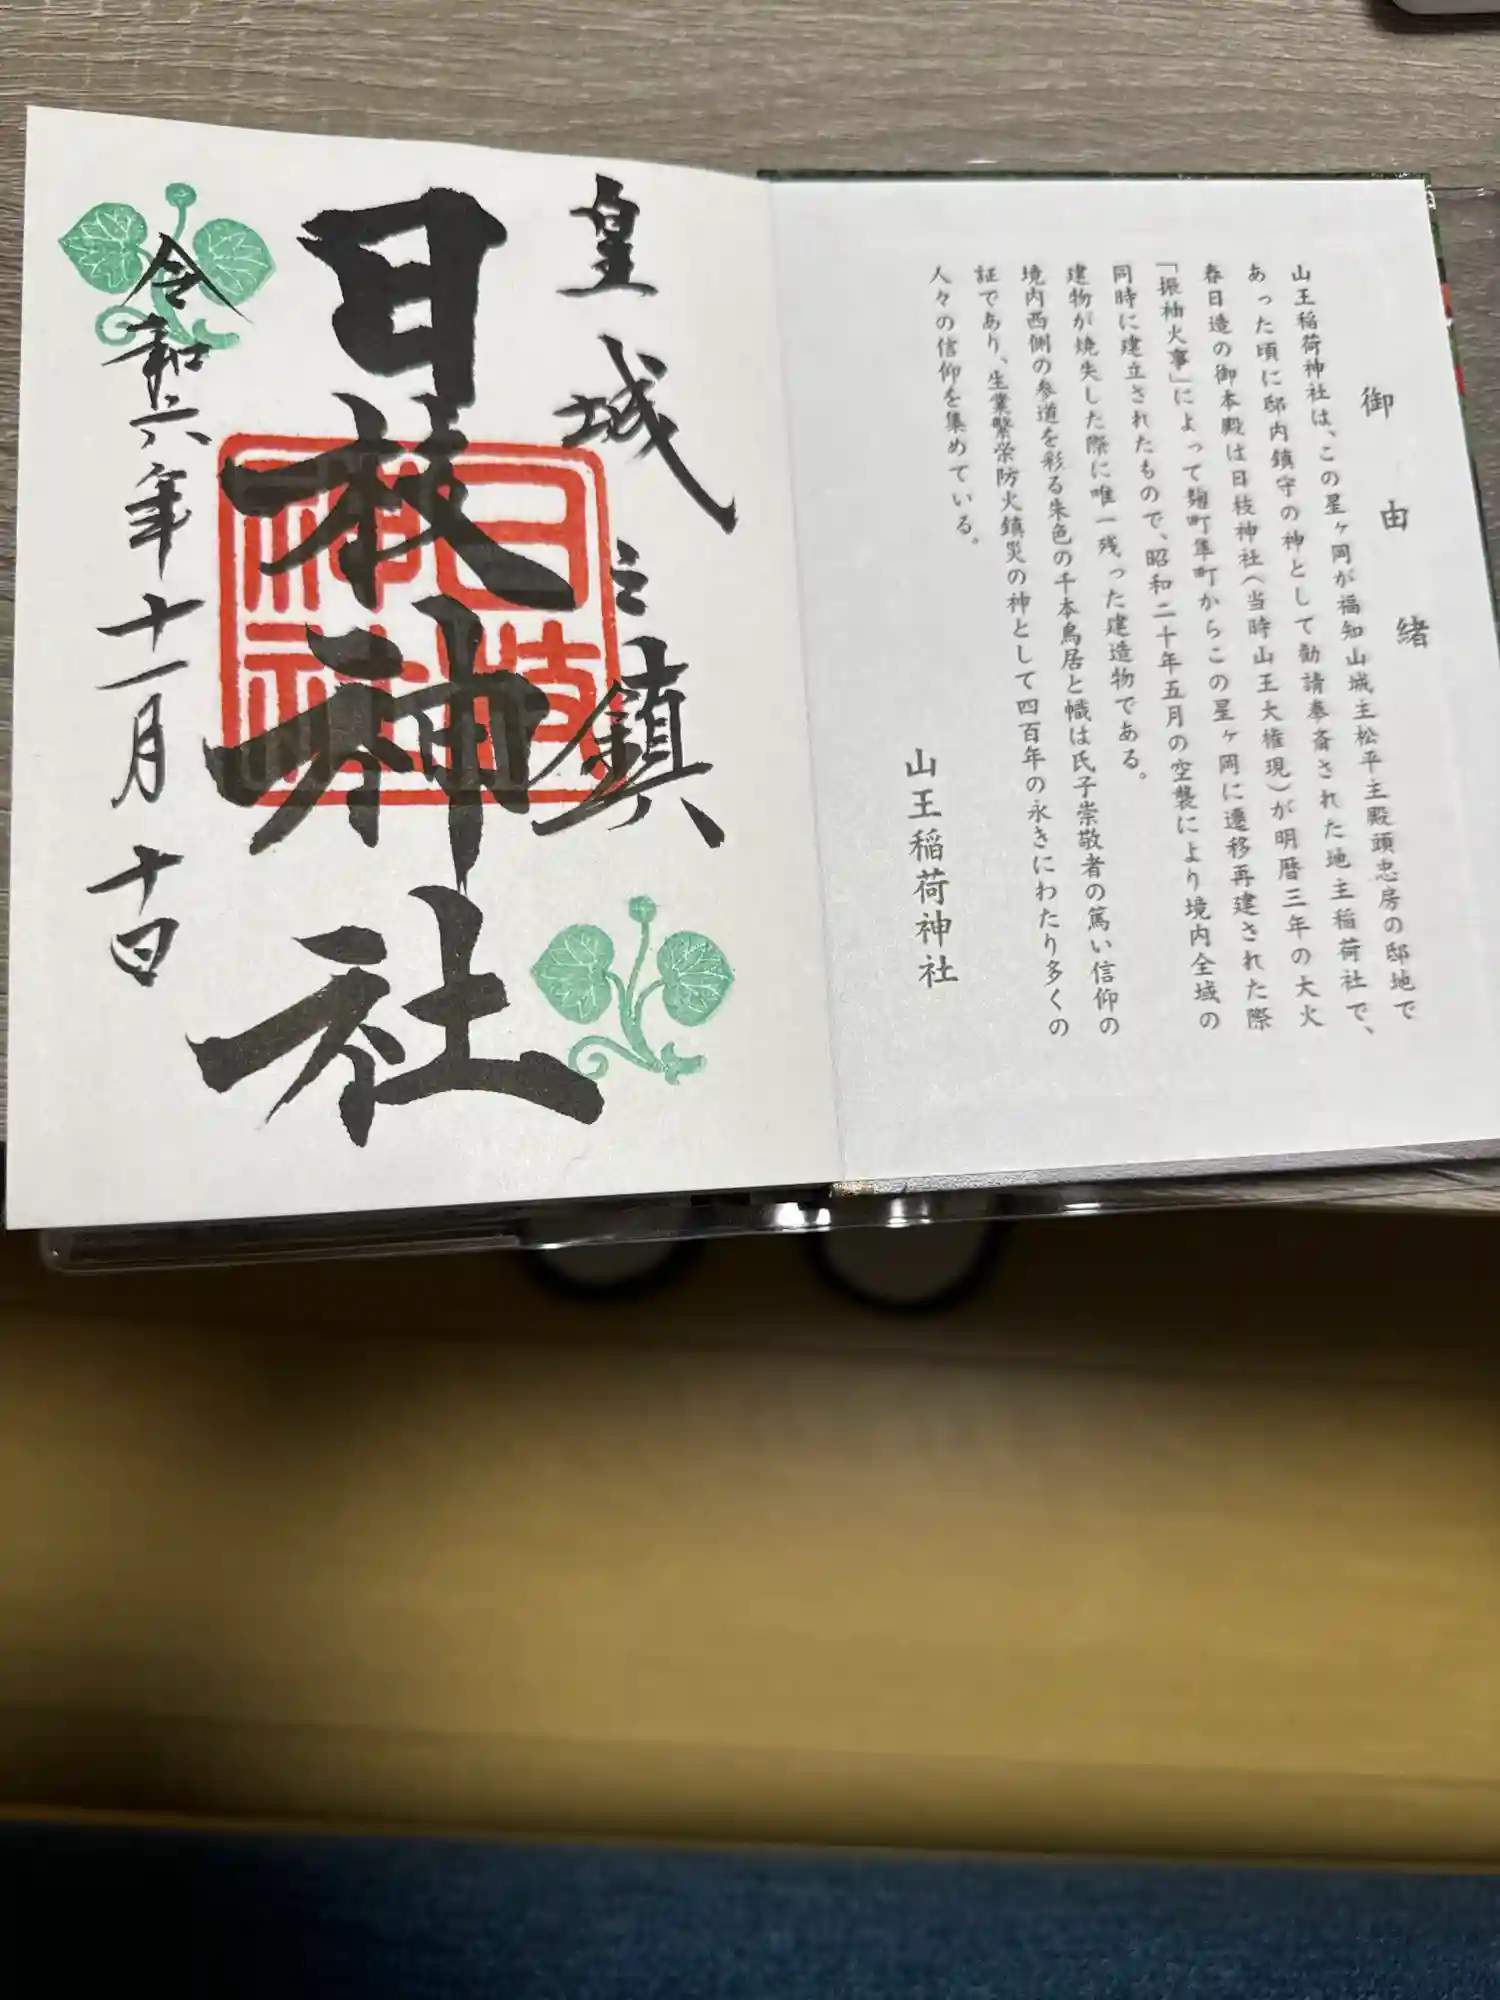 御由緒
山王稲荷神社は、この星ヶ岡が福知山城主松平主殿頭忠房の邸地で
あった頃に邸内鎮守の神として勧請奉斎された地主稲荷社で、
春日造の御本殿は日枝神社(当時山王大権現)が明暦三年の大火
「振袖火事」によって麹町隼町からこの星ヶ岡に遷移再建された際
同時に建立されたもので、昭和二十年五月の空襲により境内全域の
建物が焼失した際に唯一残った建造物である。
境内西側の参道を彩る朱色の千本鳥居と幟は氏子崇敬者の篤い信仰の
証であり、生業繁栄防火鎮災の神として四百年の永きにわたり多くの
人々の信仰を集めている。
山王稲荷神社
皇城之鎮
日枝神社
日枝
神社
令和六年十一月十日